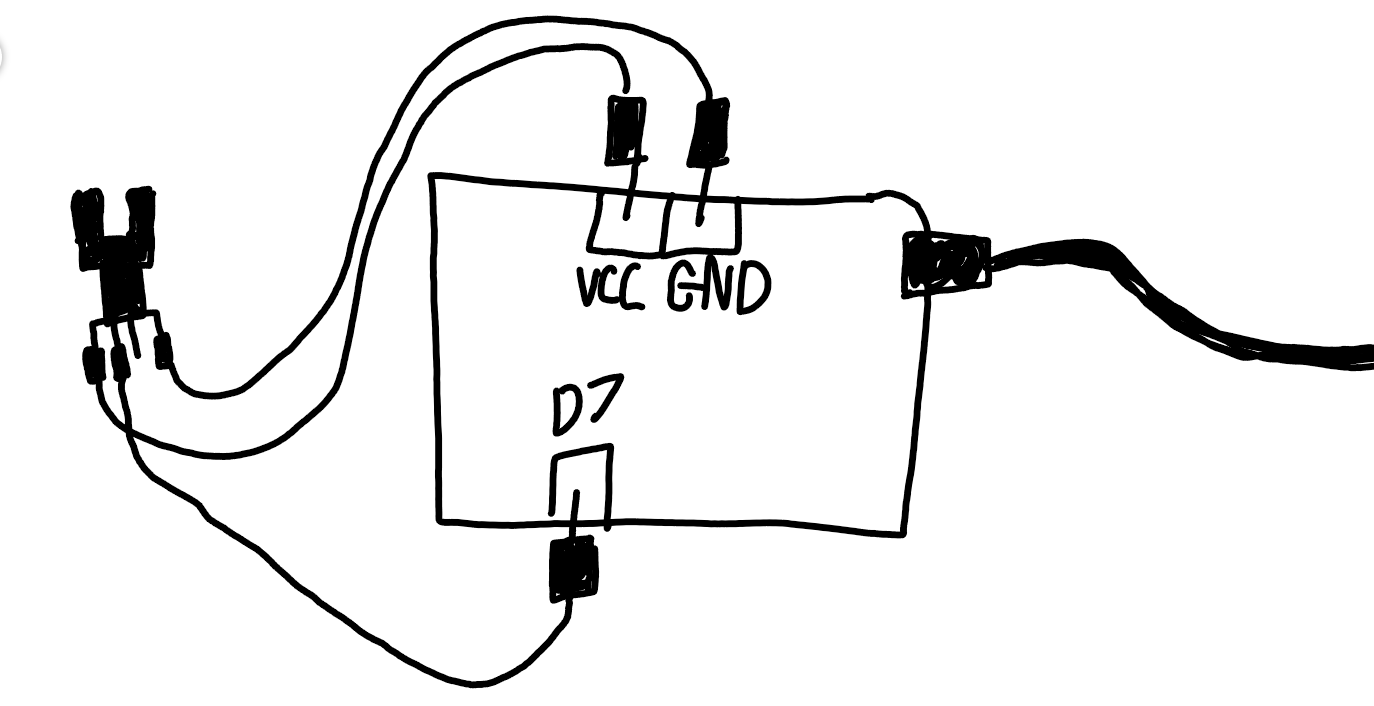 VCC GND
D7